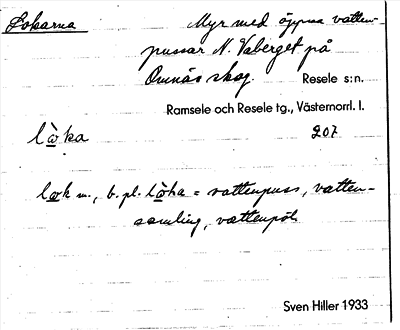 Lokarna Myr med öppna vatten-
pussar N. Vaberget på
Omnäs skog. Resele s:n.
Ramsele och Resele tg., Västernorrl. l.
lò̀ka 207
lo̲k m., b. pl. lò̀ka = vattenpuss, vatten-
samling, vattenpöl.
Sven Hiller 1933